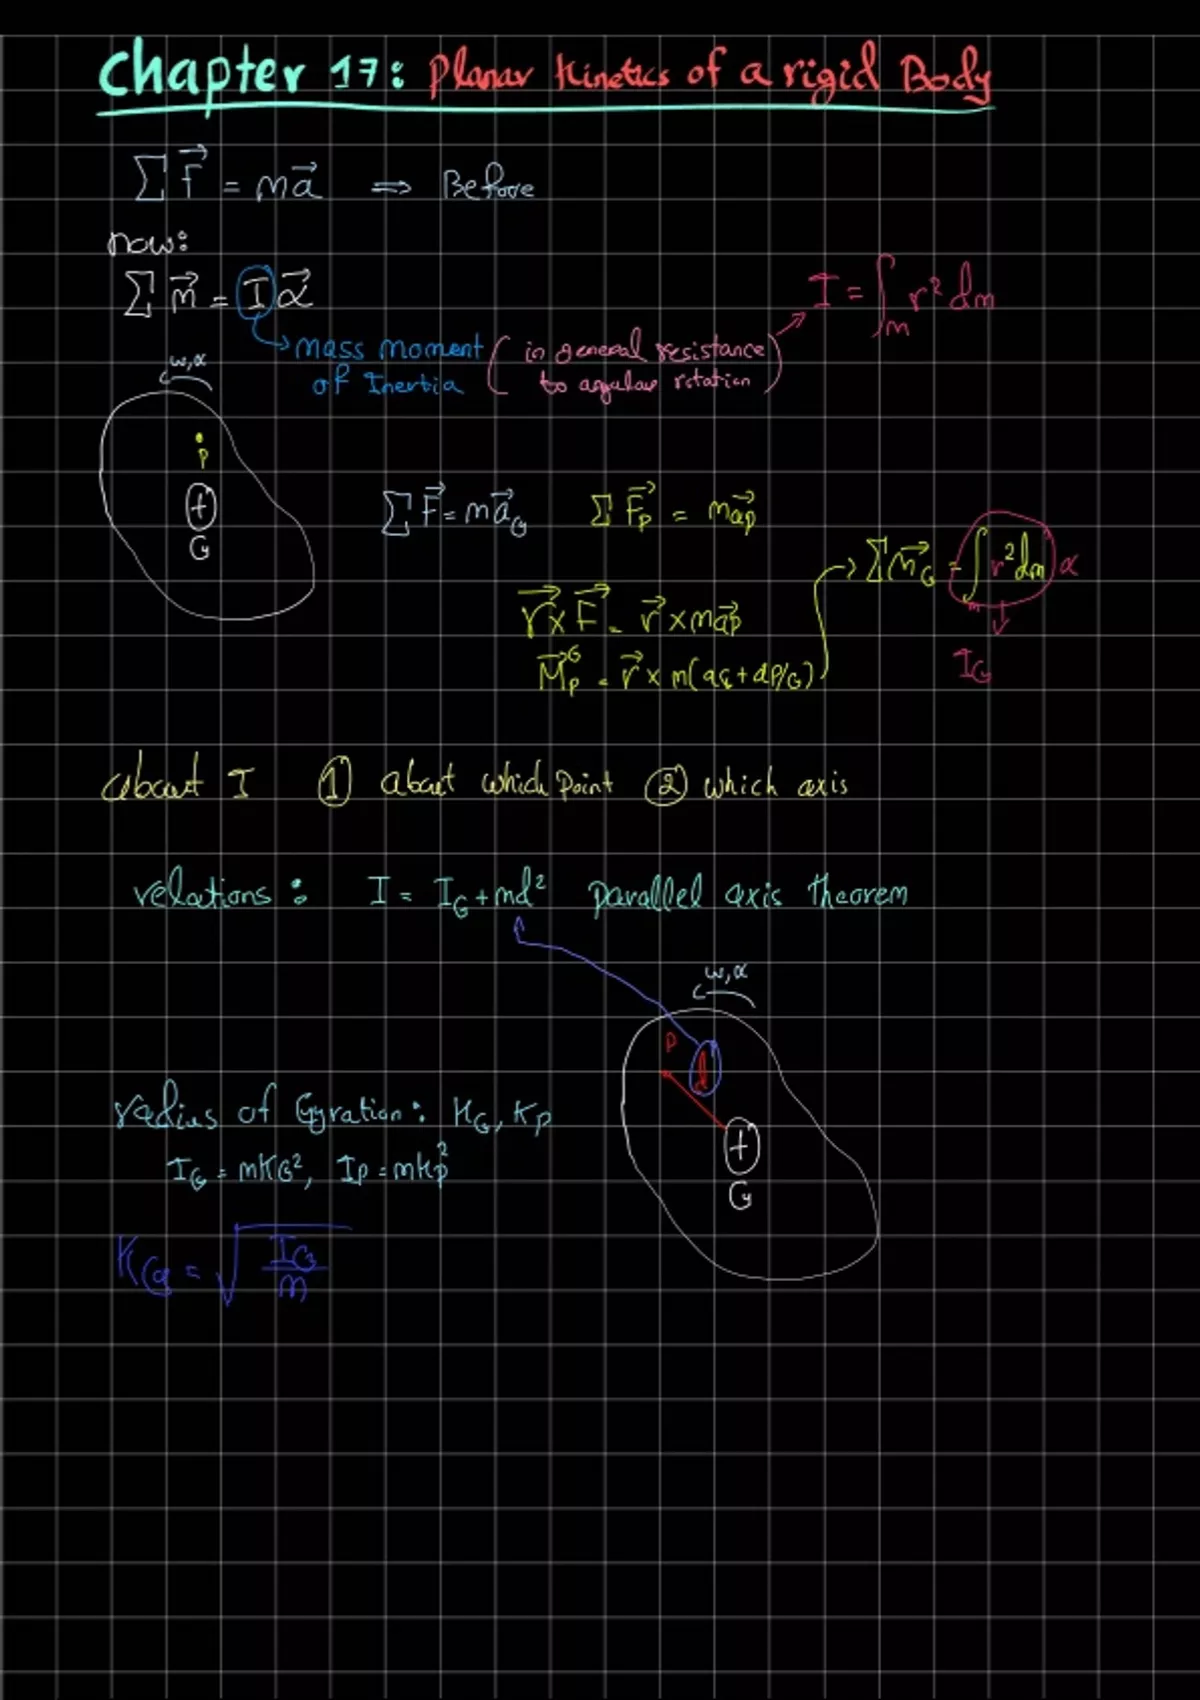 Chapter 17: Planar Kinetics of a rigid Body
∑F⃗ = ma⃗ ⇒ Before
now:
∑m⃗ = Iα⃗
I = ∫ₘ r² dm
mass moment of Inertia
(in general resistance to angular rotation)
ω,α
P
G
∑F⃗ = ma⃗G
∑F⃗p = ma⃗p
∑M⃗G = ∫ₘ r²dm α
r⃗ x F⃗ = r⃗ x ma⃗p
M⃗pᴳ = r⃗ x m(aG + aP/G)
IG
about I ① about which point ② which axis
relations: I = IG + md² parallel axis theorem
ω,α
P
d
G
radius of Gyration: KG, Kp
IG = mKG², Ip = mKp²
KG = √(IG/m)